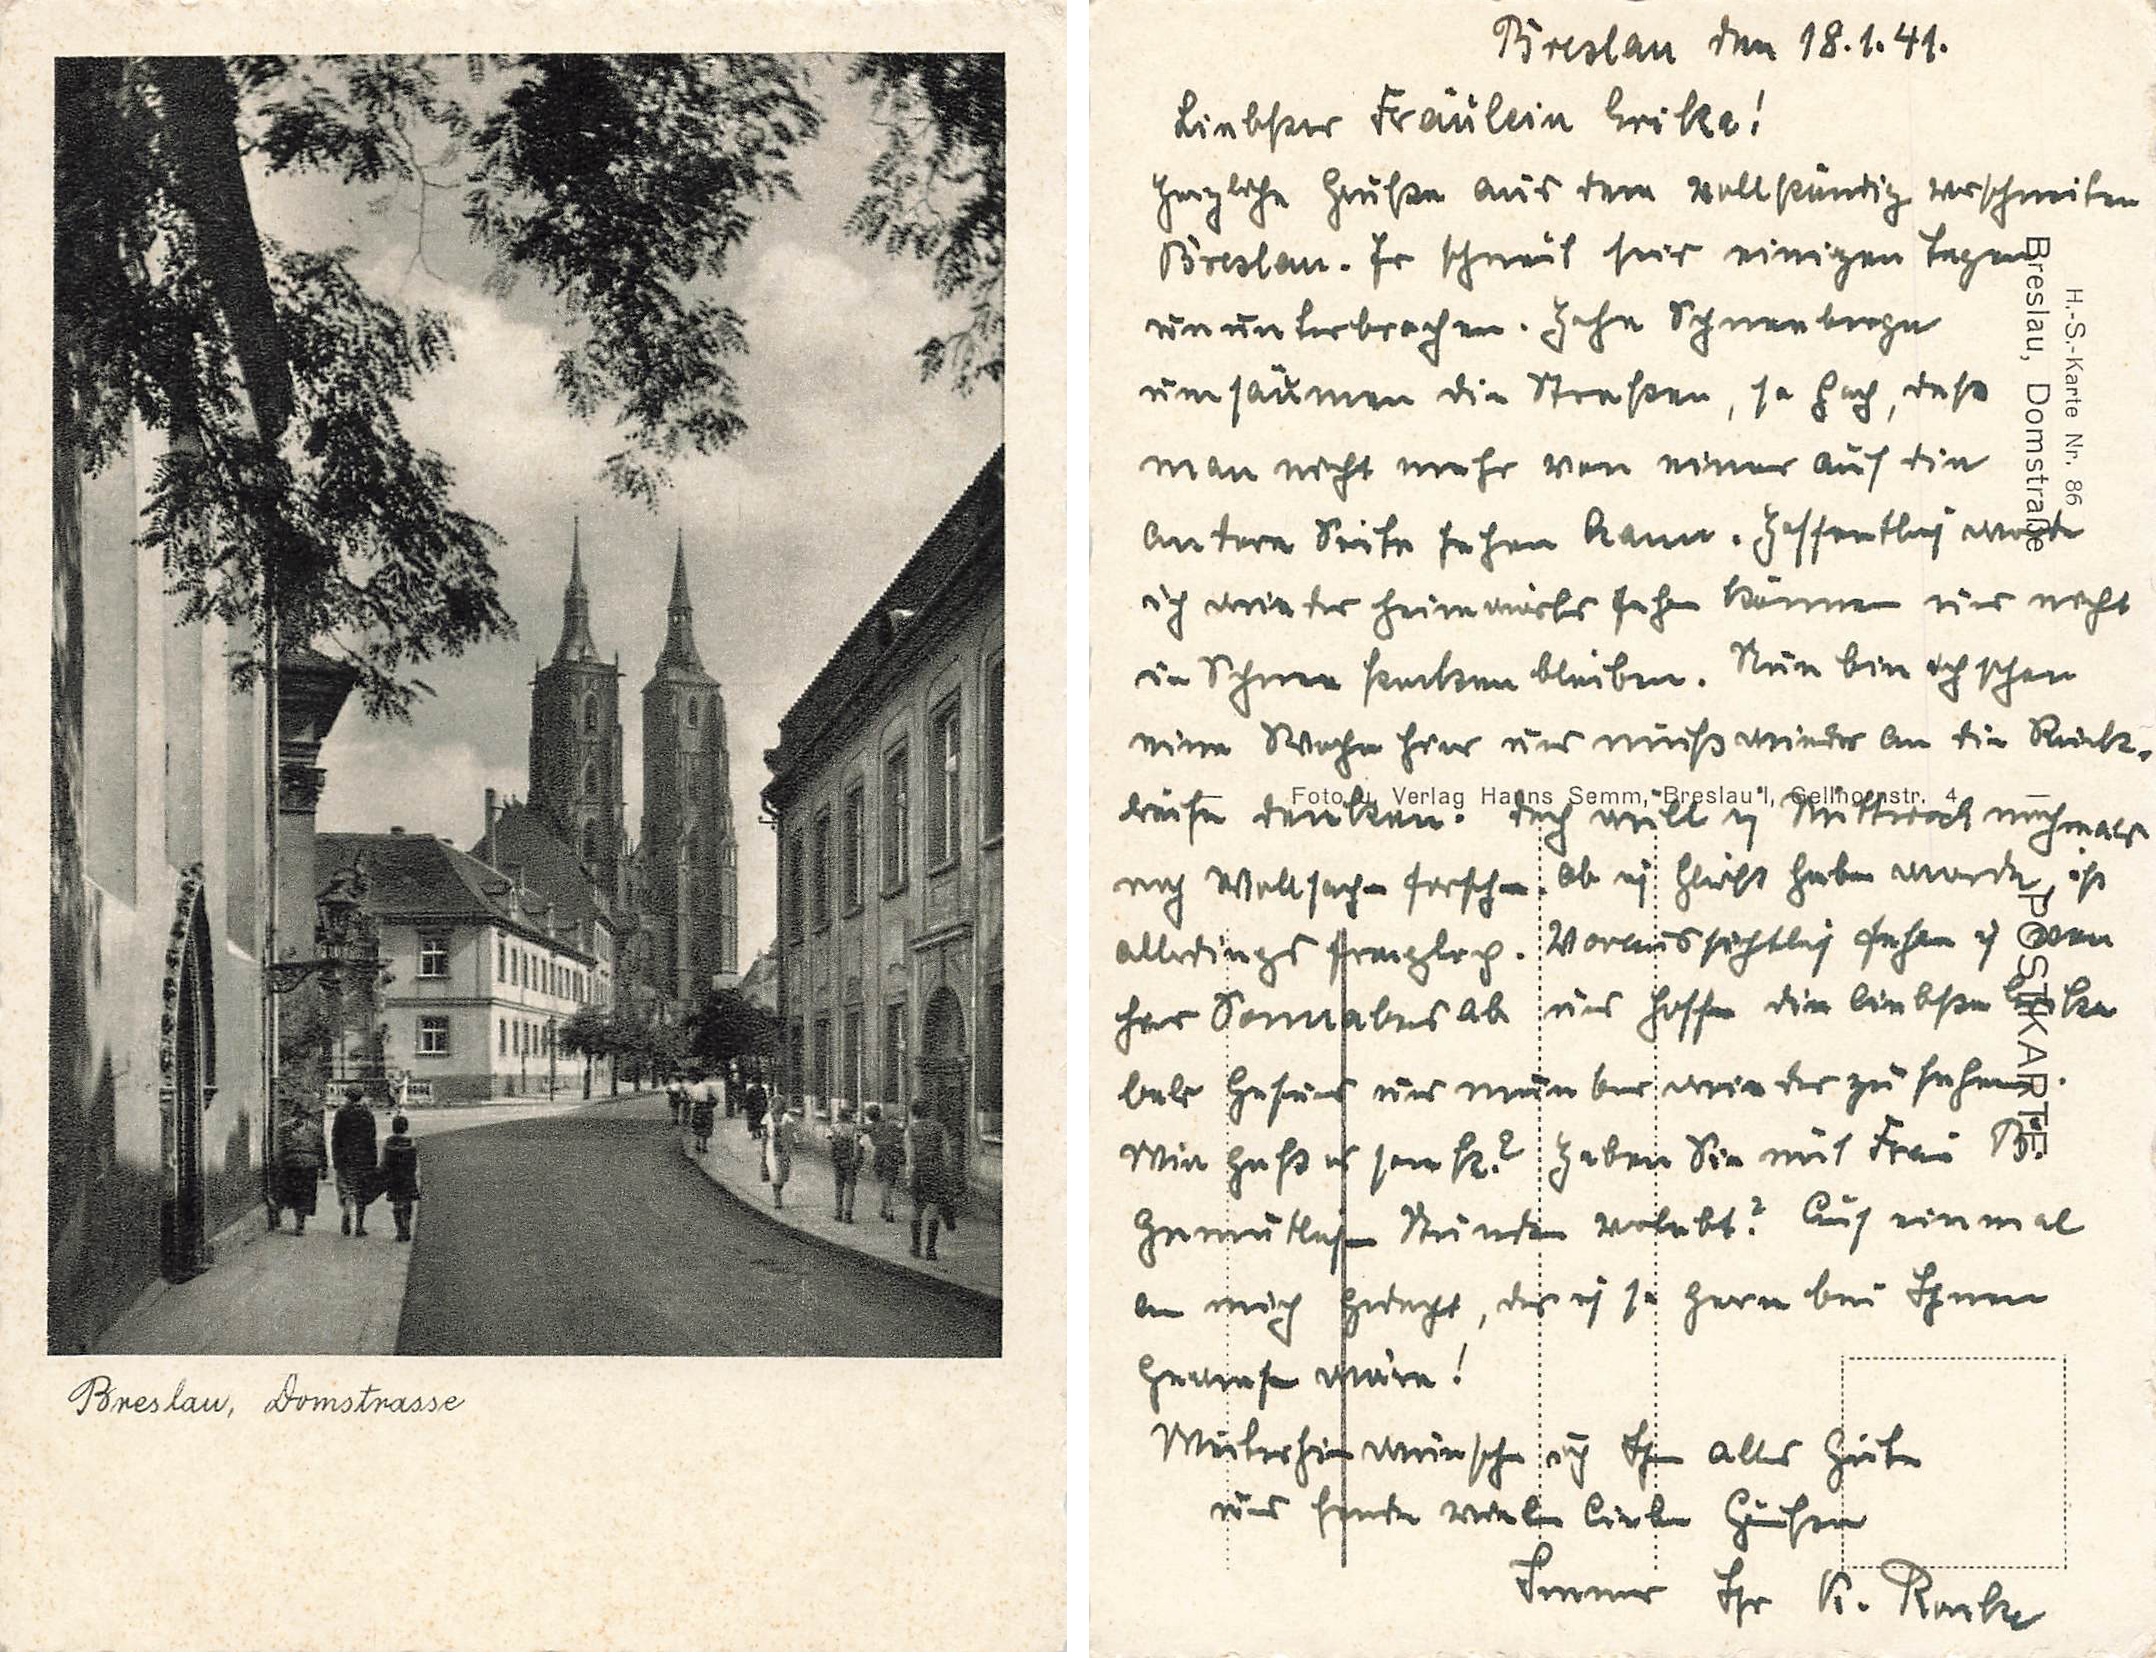 Breslau, Domstrasse
Breslau den 18.1.41.
Liebstes Fräulein Erika!
Herzliche Grüße aus dem vollständig verschneiten
Breslau. Es schneit seit einigen Tagen
ununterbrochen. Hohe Schneeberge
umsäumen die Straßen, so hoch, daß
man nicht mehr von einer auf die
andere Seite sehen kann. Hoffentlich werde
ich wieder heimwärts fahren können und nicht
im Schnee stecken bleiben. Nun bin ich schon
eine Woche hier und muß wieder an die Rück-
reise denken. Doch will ich Mittwoch nochmals
nach Wollsachen forschen. Ob ich Glück haben werde, ist
allerdings fraglich. Voraussichtlich fahre ich von
hier Sonnabend ab und hoffe die liebste Erika
bald gesund und munter wieder zu sehen.
Wie geht es sonst? Haben Sie mit Frau B.
gemütliche Stunden verlebt? Auch einmal
an mich gedacht, der ich so gern bei Ihnen
gewesen wäre!
Weiterhin wünsche ich Ihnen alles Gute
und sende viele liebe Grüße
Immer Ihr K.
H.-S.-Karte Nr. 86
Breslau, Domstraße
Foto u. Verlag Hanns Semm, Breslau I, Gellhornstr. 4
POSTKARTE